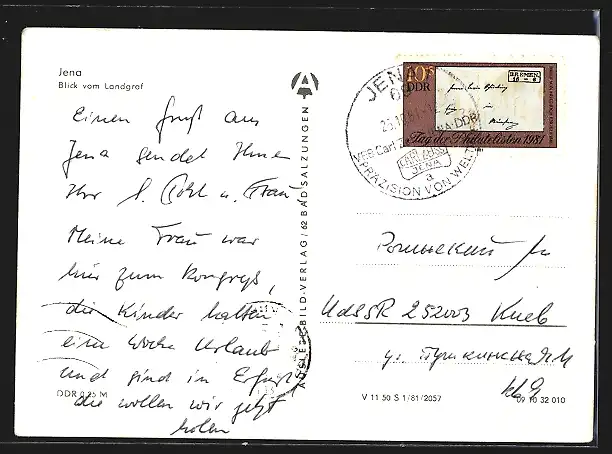 Jena
Blick vom Landgraf
Einen Gruß aus
Jena sendet Ihnen
Ihr S. Pohl u. Frau
Meine Frau war
hier zum Kongreß,
die Kinder hatten
eine Woche Urlaub
und sind in Erfurt
die wollen wir jetzt
holen
DDR 0,25 M
AUSLESE-BILD-VERLAG/62 BAD SALZUNGEN
10
DDR
BREMEN
Tag der Philatelisten 1981
JENA
VEB Carl
CARL ZEISS
JENA
a
PRÄZISION VON WEL
UdSSR 252003 Киев
ул.
кв. 9
V 11 50 S 1/81/2057
09 10 32 010